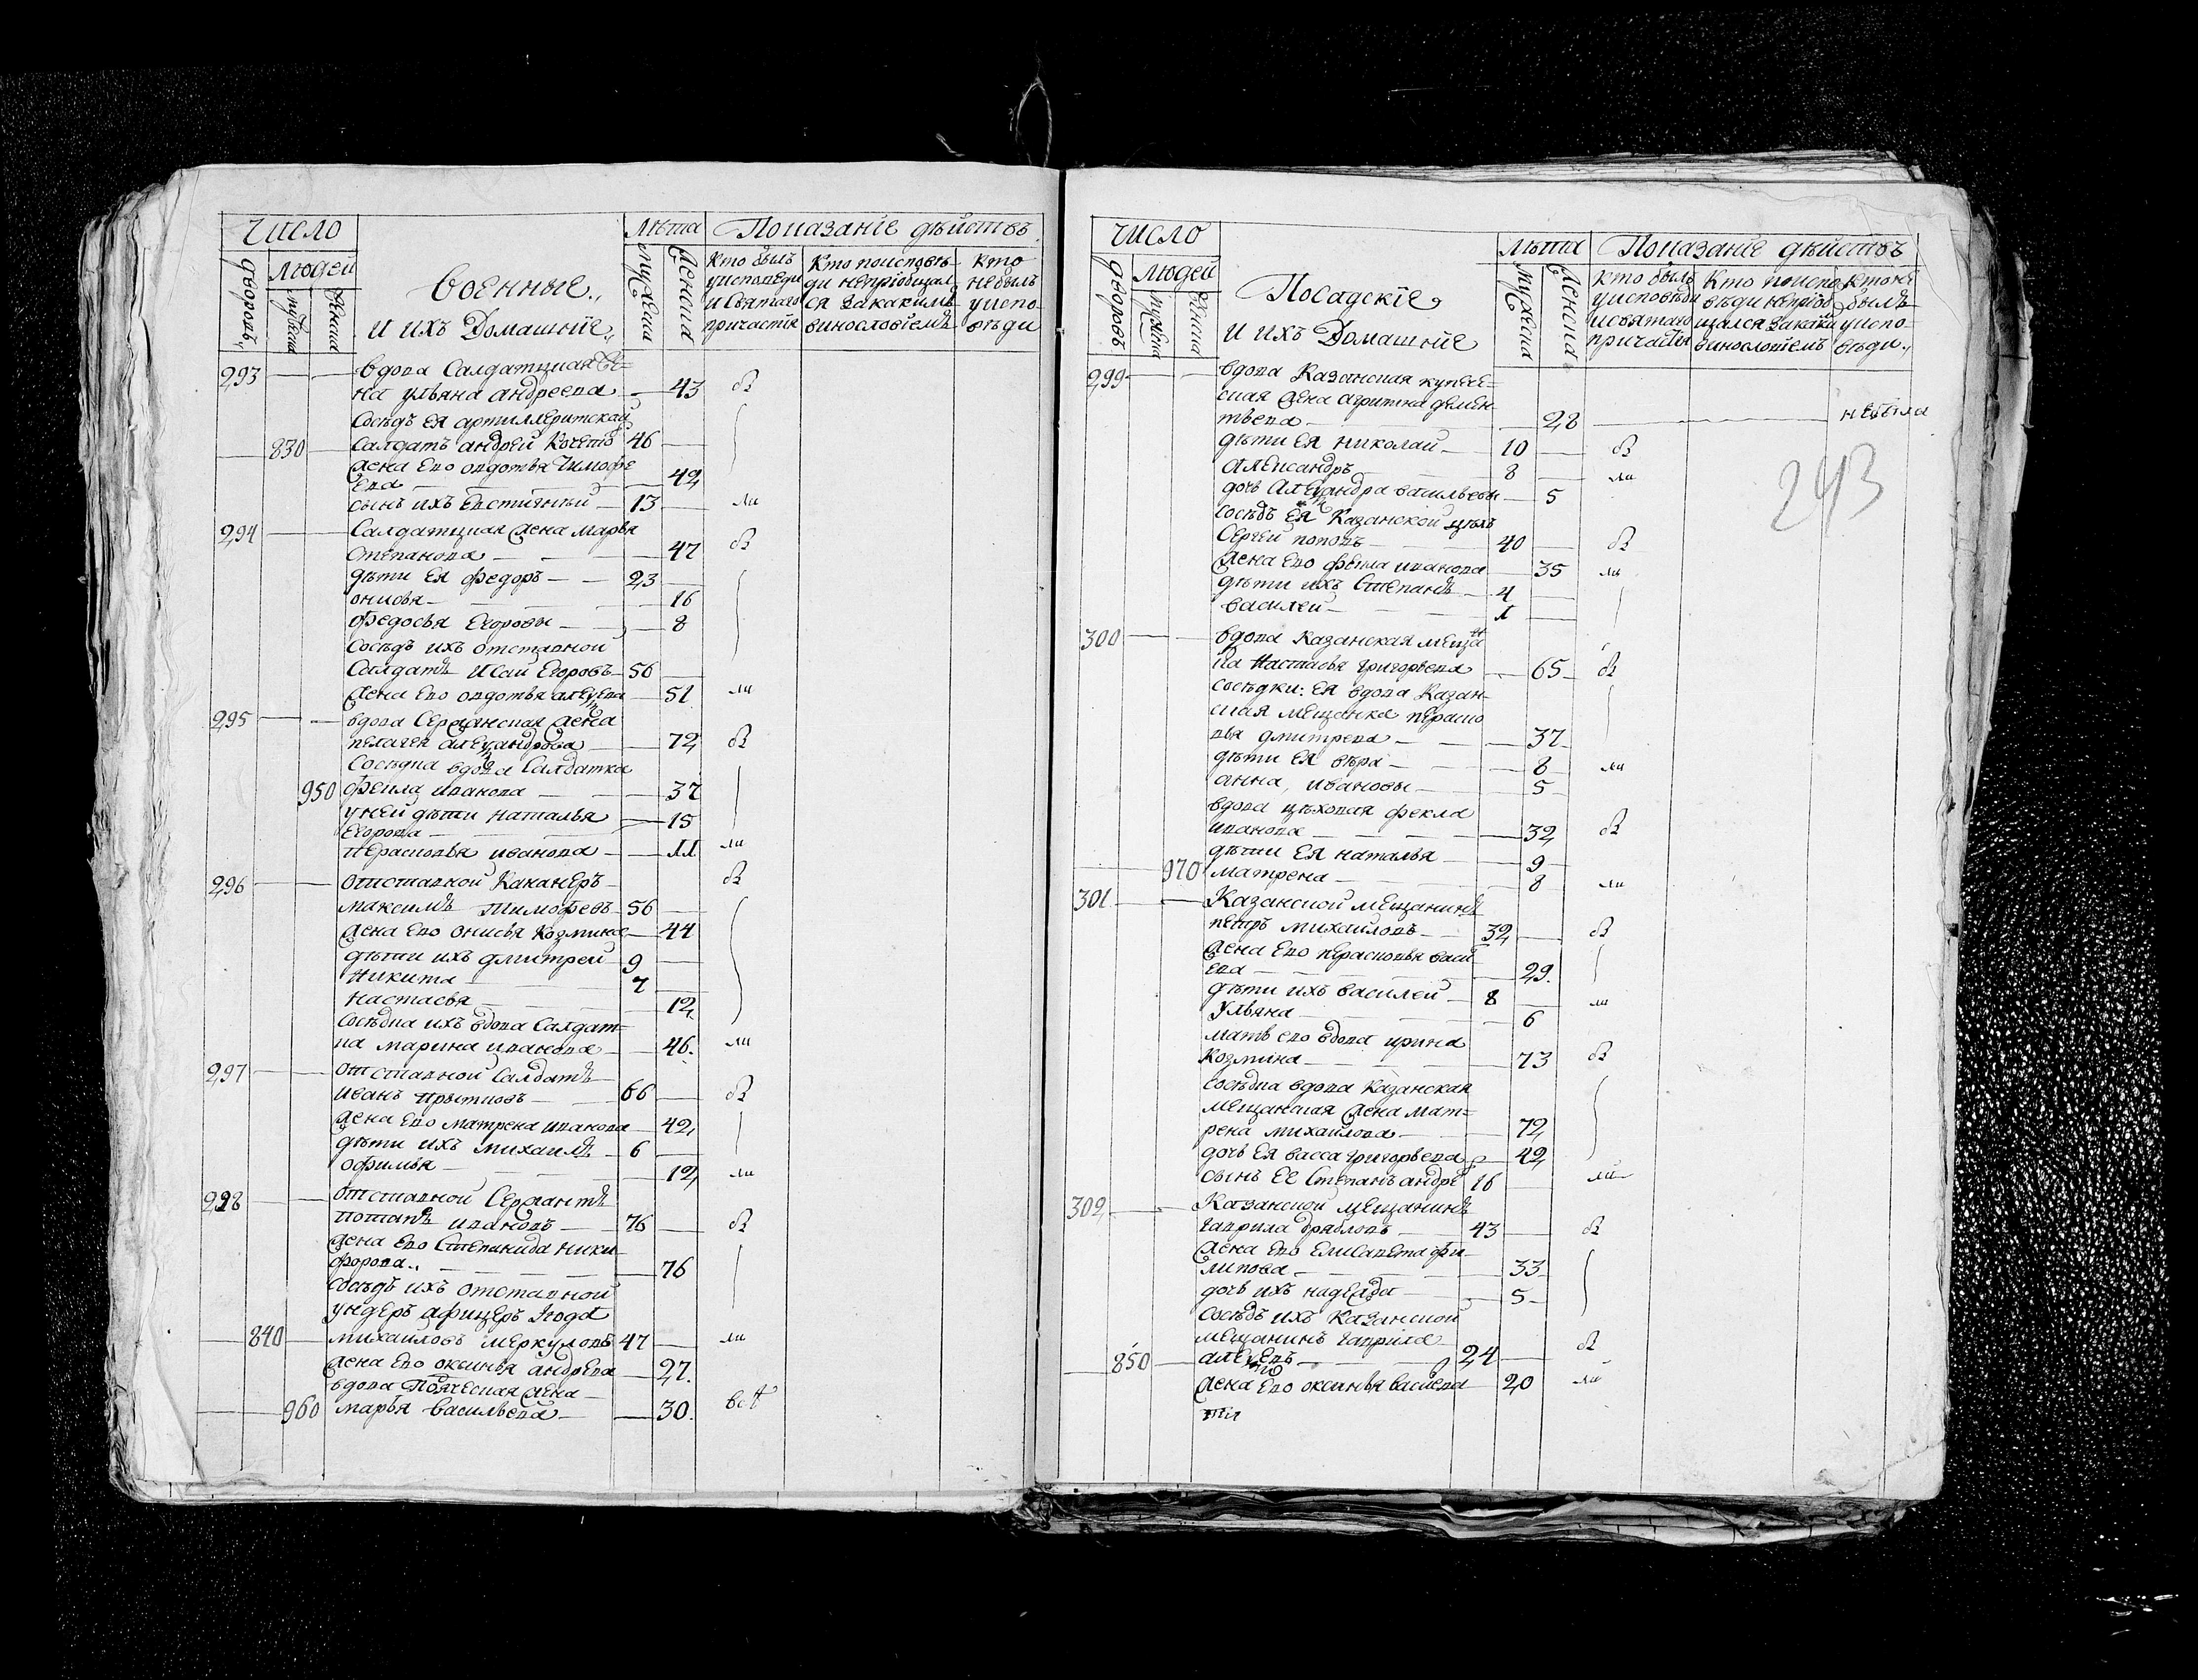 Число
Людей
дворовъ
мужеска
женска
Военные
и ихъ Домашніе
Лѣта
мужеска
женска
Показаніе дѣйствъ
Кто былъ
у исповеди
и святаго
причастія
Кто по исповѣ-
ди непріобщал
ся за какимъ
винословіемъ
Кто
небылъ
у испо-
вѣди
293 вдова Салдатцкая же-
на ульяна андреева 43
Сосѣдъ ея артиллеритской
830 салдатъ андрей 46
жена ево овдотья Тимофе
ева 42
сынъ ихъ Евстигнѣй 13 ли
294 Салдатцкая жена марья
степанова 47
дѣти ея федоръ 23
онисья 16
федосья Егоровы 8
Сосѣдъ ихъ отставной
Салдатъ Исай Егоровъ 56
жена ево овдотья алеѯева 51 ли
295 вдова Сержанская жена
пелагея алеѯандрова 72
Сосѣдка вдова Салдатка
950 фекла иванова 37
у ней дѣти наталья
Егорова 15
Перасковья иванова 11 ли
296 отставной Кананеръ
максимъ тимофеевъ 56
жена ево онисья козмина 44
дѣти ихъ дмитрей 9
Никита 7
настасья 12
Сосѣдка ихъ вдова Салдат-
ка марина иванова 46. ли
297 отставной Салдатъ
иванъ 66
жена ево матрена иванова 42
дѣти ихъ михаилъ 6
офимья 12 ли
298 отставной Сержантъ
потапъ ивановъ 76
жена ево Степанида Ники-
форова 76
сосѣдъ ихъ отставной
ундеръ афицеръ Iюда
840 михайловъ меркуловъ 47 ли
жена ево оксинья андрева 27.
вдова жена
960 марья васильева 30.
Число
Людей
дворовъ
мужеска
женска
Посадскіе
и ихъ Домашніе
Лѣта
мужеска
женска
Показаніе дѣйствъ
Кто былъ
у исповѣди
и святаго
причастія
Кто по испо
вѣди непріоб
щался за каки
винословіемъ
Кто не
былъ
у испо-
вѣди
299 вдова Казанская купече-
ская жена агрипина демен-
тьева 28 небыла
дѣти ея николай 10
александръ 8 ли
дочь Алеѯандра васильевы 5
243
сосѣдъ ея Казанской
Сергей поповъ 40
жена ево фекла иванова 35 ли
дѣти ихъ Степанъ 4
василей 1
300 вдова Казанская мещан
ка Настасья григорьева 65
сосѣдки: ея вдова Казан-
ская мещанка пераско
вья дмитрева 37
дѣти ея вѣра 8 ли
анна, ивановы 5
вдова цѣховая фекла
иванова 32
дѣти ея наталья 9
970 матрена 8 ли
301 Казанской мещанинъ
петръ михайловъ 32
жена ево перасковья васи
ева 29.
дѣти ихъ василей 8 ли
Ульяна 6
мать ево вдова ирина
козмина 73
сосѣдка вдова казанская
мещанская жена мат-
рена михайлова 72
дочь ея васса григорьева 42
сынъ ее Степанъ андре 16 ли
302 Казанской мещанинъ
гаврила дряблов 43
жена ево елисавета фи-
липова 33
дочь ихъ надежда 5
сосѣдъ ихъ казанской
мещанинъ гаврила
850 алеѯевъ 24
жена ево оксинья васиева 20 ли